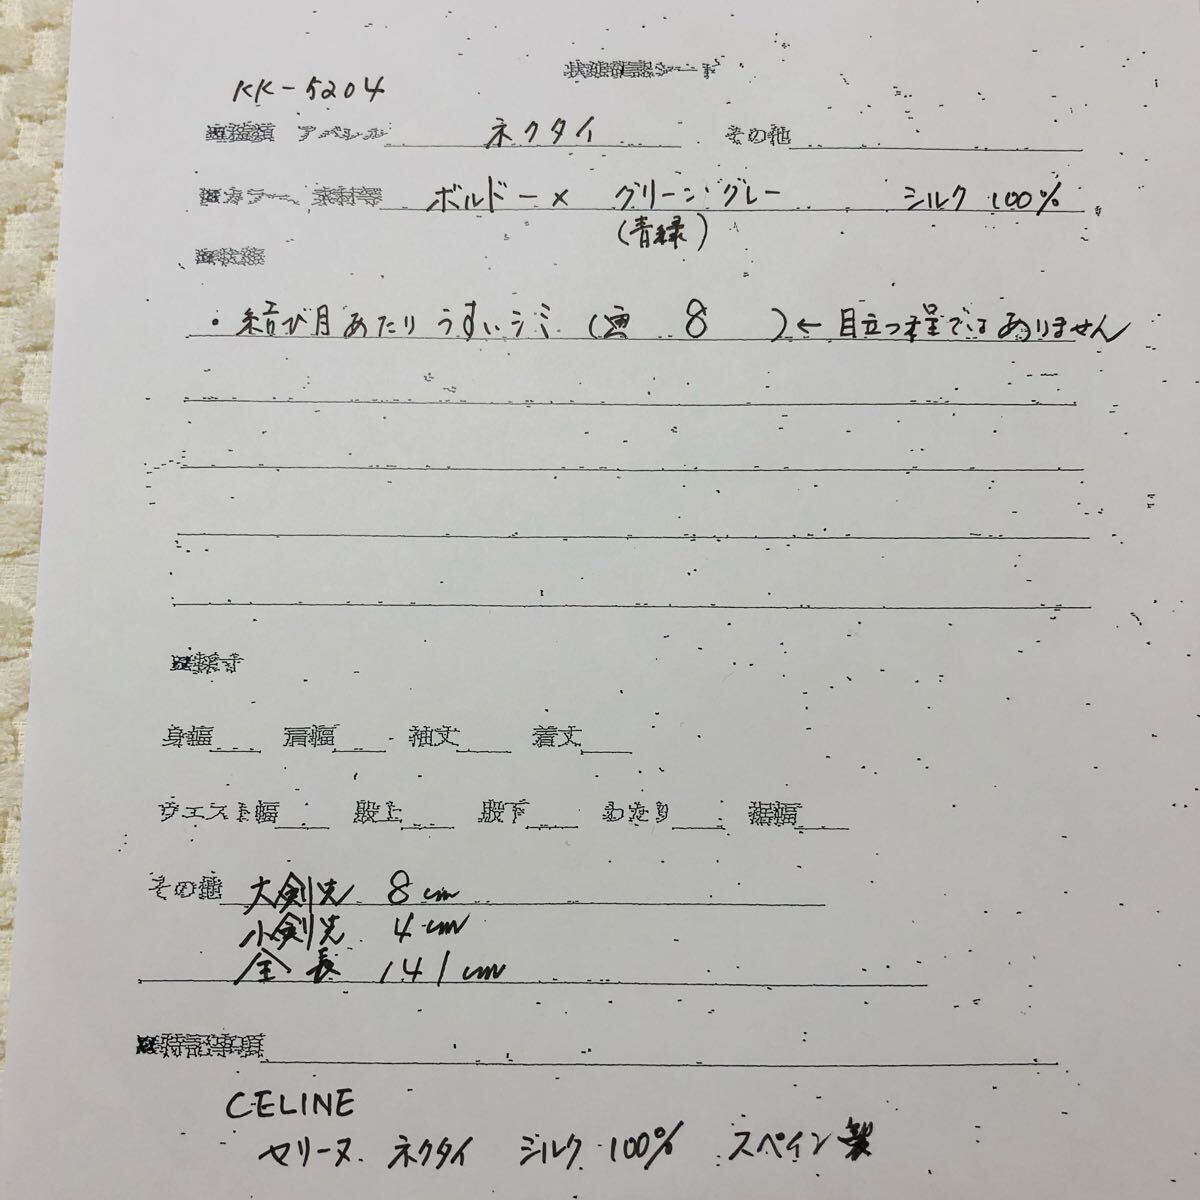 状態確認シート
KK-5204
■種類 アパレル ネクタイ その他
■カラー、素材等 ボルドー× グリーングレー シルク 100%
(青緑)
■状態
・結び目あたり うすいシミ (画 8 )← 目立つ程ではありません
■採寸
身幅 肩幅 袖丈 着丈
ウエスト幅 股上 股下 わたり 裾幅
その他 大剣先 8cm
小剣先 4cm
全長 141cm
■特記事項
CELINE
セリーヌ ネクタイ シルク 100% スペイン製